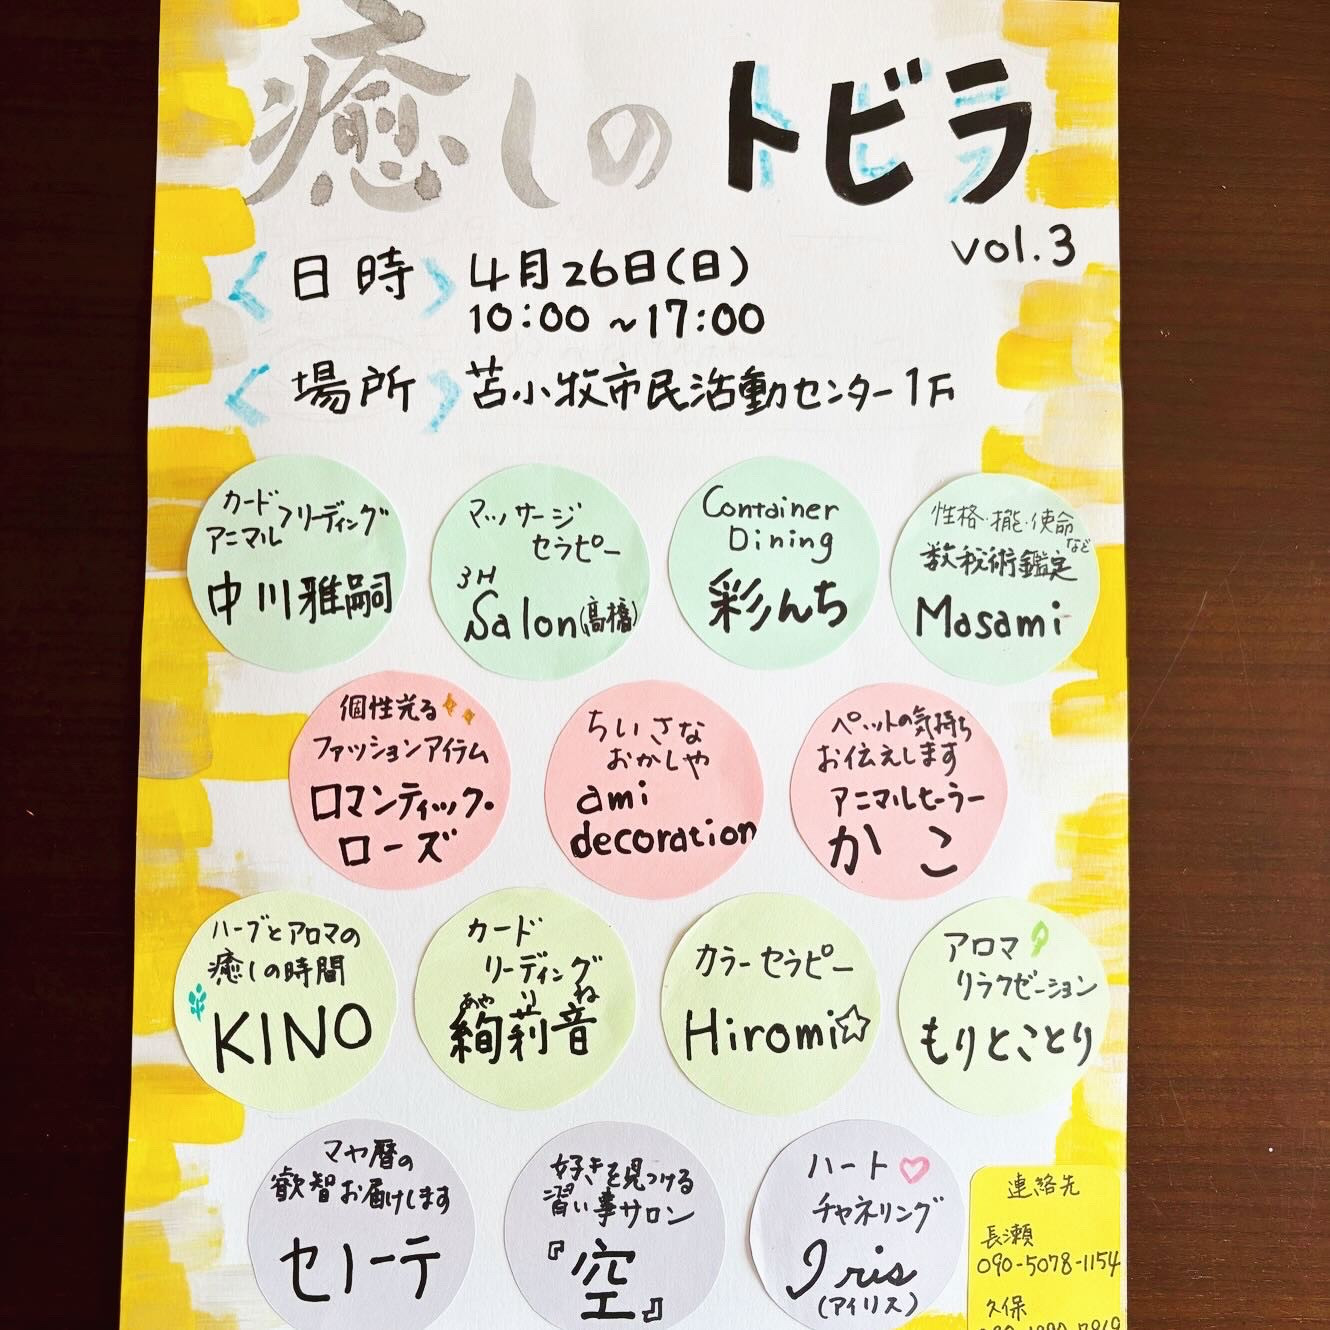 癒しのトビラ
vol.3
〈日時〉 4月26日(日)
10:00 ~17:00
〈場所〉 苫小牧市民活動センター1F
カードリーディング
アニマル
中川雅嗣
マッサージ
セラピー
3H
Salon(高橋)
Container
Dining
彩んち
性格・才能・使命
など
数秘術鑑定
Masami
個性光る
ファッションアイテム
ロマンティック・
ローズ
ちいさな
おかしや
ami
decoration
ペットの気持ち
お伝えします
アニマルヒーラー
かこ
ハーブとアロマの
癒しの時間
KINO
カード
リーディング
あや り ね
絢莉音
カラーセラピー
Hiromi☆
アロマ
リラクゼーション
もりとことり
マヤ暦の
叡智お届けします
セノーテ
好きを見つける
習い事サロン
『空』
ハート♡
チャネリング
Iris
(アイリス)
連絡先
長瀬
090-5078-1154
久保